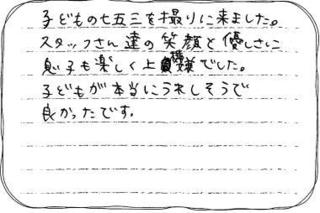 子どもの七五三を撮りに来ました。
スタッフさん達の笑顔と優しさに
息子も楽しく上機嫌でした。
子どもが本当にうれしそうで
良かったです。